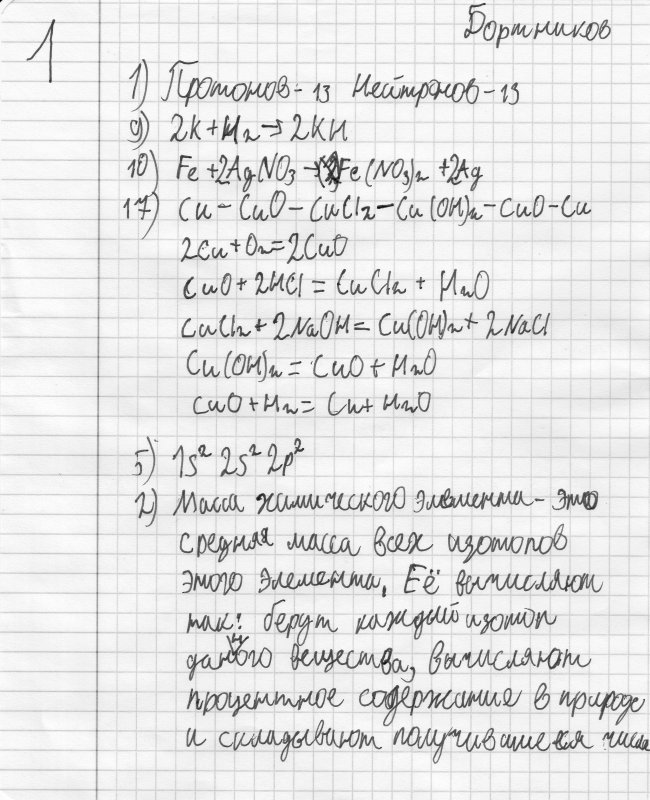 Бортников
1
1) Протонов - 13 Нейтронов - 13
9) 2K + H2 → 2KH
10) Fe + 2AgNO3 → Fe(NO3)2 + 2Ag
17) Cu - CuO - CuCl2 - Cu(OH)2 - CuO - Cu
2Cu + O2 = 2CuO
CuO + 2HCl = CuCl2 + H2O
CuCl2 + 2NaOH = Cu(OH)2 + 2NaCl
Cu(OH)2 = CuO + H2O
CuO + H2 = Cu + H2O
5) 1s² 2s² 2p²
2) Масса химического элемента - это
средняя масса всех изотопов
этого элемента. Её вычисляют
так: берут каждый изотоп
данного вещества, вычисляют
процентное содержание в природе
и складывают получившиеся числа